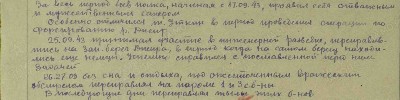 За весь период боев полка, начиная с 17.07.43, проявил себя отважным
и мужественным сапером
Особенно отличился т. в период проведения операции по
форсированию р. Днепр
25.09.43 принимал участие в инженерной разведке, переправив-
шись на зап берег Днепра, в период когда на самом берегу находи-
лись еще немцы. Успешно справился с поставленной перед ним
задачей
26-27.09 без сна и отдыха, под ожесточенным вражеским
обстрелом переправлял на пароме 1 и 3 с б-ны
В последующие дни переправлял тылы этих б-нов.